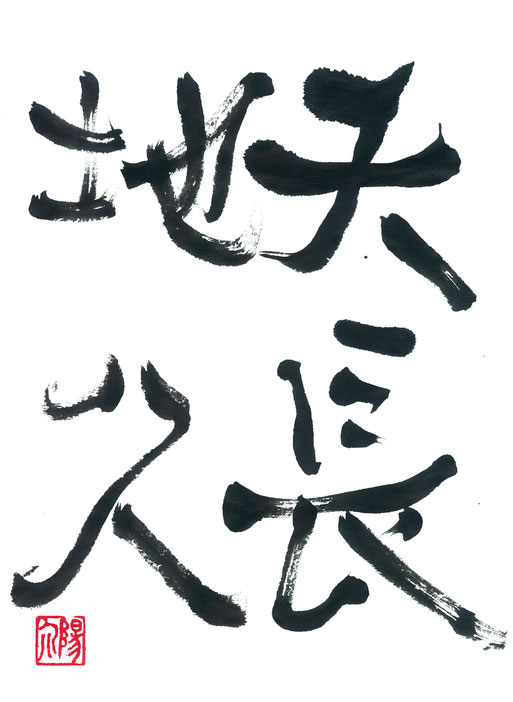 天長
地久
陽